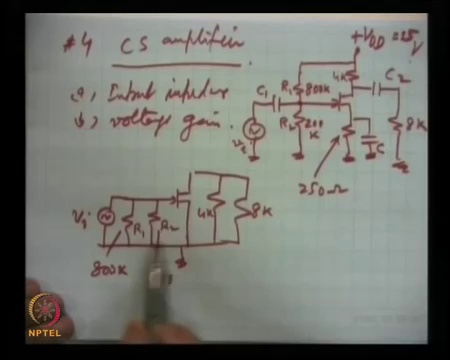 #4 CS amplifier
a, Input impedance
b, voltage gain.
+VDD = 15V
4K
C2
C1
R1 800K
R2 200K
8K
Vs
C
250Ω
Vi
R1
R2
4K
8K
800K
NPTEL